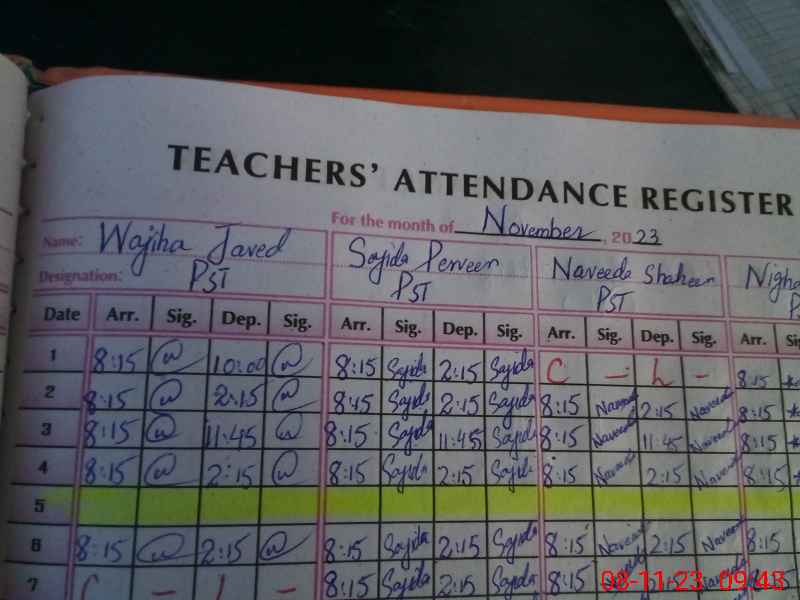 TEACHERS' ATTENDANCE REGISTER
For the month of November, 2023
Name: Wajiha Javed Sajida Perveen Naveeda Shaheen
Designation: PST PST PST
Date Arr. Sig. Dep. Sig. Arr. Sig. Dep. Sig. Arr. Sig. Dep. Sig. Arr.
1 8:15 10:00 8:15 Sajida 2:15 Sajida C – L – 8:15
2 8:15 2:15 8:15 Sajida 2:15 Sajida 8:15 Naveeda 2:15 Naveeda 8:15
3 8:15 11:45 8:15 Sajida 11:45 Sajida 8:15 Naveeda 11:45 Naveeda 8:15
4 8:15 2:15 8:15 Sajida 2:15 Sajida 8:15 Naveeda 2:15 Naveeda 8:15
5
6 8:15 2:15 8:15 Sajida 2:15 Sajida 8:15 Naveeda 2:15 Naveeda 8:15
7 C – L – 8:15 Sajida 2:15 Sajida 8:15
08-11-23 09:43